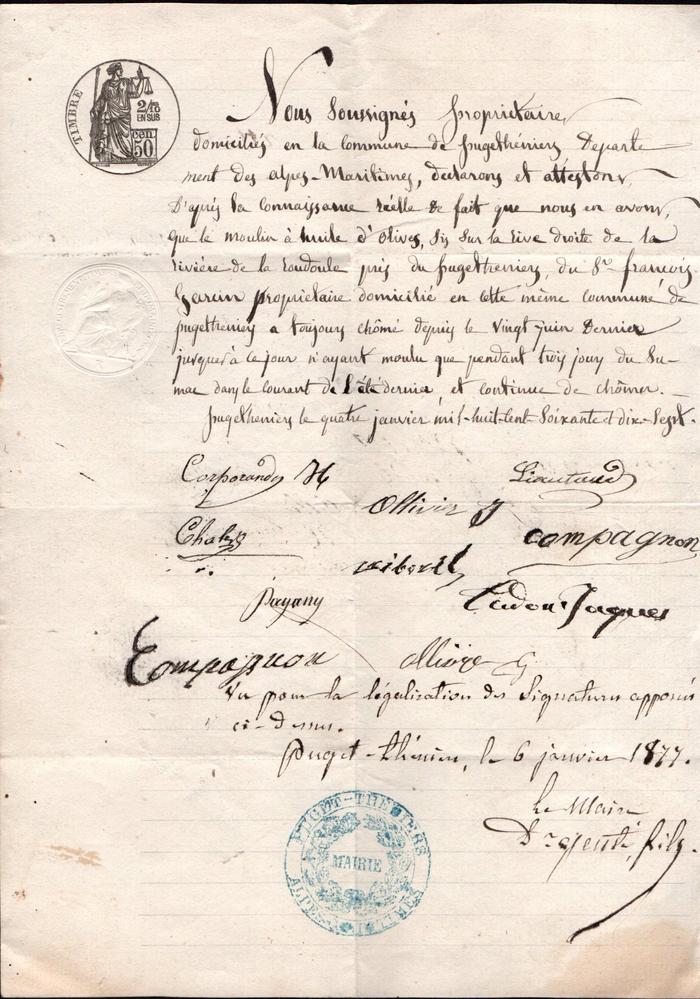 TIMBRE
2/10
EN SUS
50 cen
Nous Soussignés propriétaires
domiciliés en la commune de pugetthéniers Départe
ment des alpes-Maritimes, déclarons et attestons,
D'après la connaissance réelle de fait que nous en avons,
que le moulin à huile d'Olives, sis sur la rive droite de la
rivière de la Roudoule près du pugettheniers, du Sr. françois
Garcin propriétaire domicilié en cette même commune de
pugettheniers a toujours chômé depuis le vingt juin Dernier
jusques à ce jour n'ayant moulu que pendant trois jours du Su-
mac dans le courant de l'été dernier, et continue de chômer.
pugettheniers le quatre janvier mil-huit-cent-soixante et dix-Sept.
Corporandy H
Liautaud
Ollivier J
compagnon
Payany
Jaques
Compagnon
Miöze G
Vu pour la légalisation des Signatures apposées
ci-dessus.
Puget-théniers, le 6 janvier 1877.
Le Maire
fils
PUGET-THENIERS
MAIRIE
ALPES MARITIMES